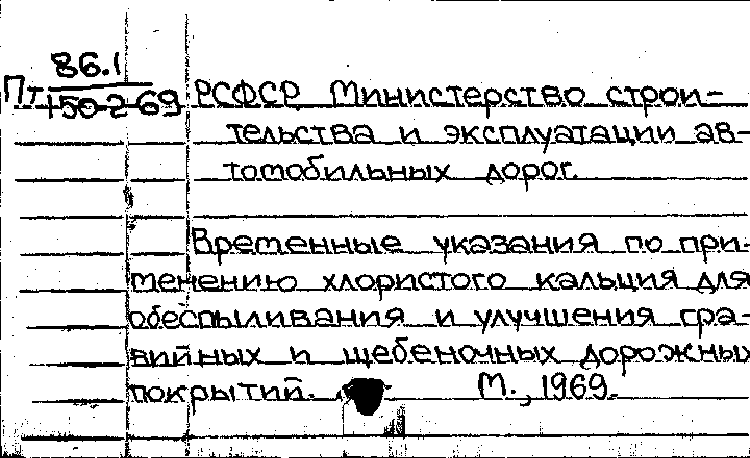 86.1
Пт 150-2-69 РСФСР Министерство строи-
тельства и эксплуатации ав-
томобильных дорог.
Временные указания по при-
менению хлористого кальция для
обеспыливания и улучшения гра-
вийных и щебеночных дорожных
покрытий. М., 1969.